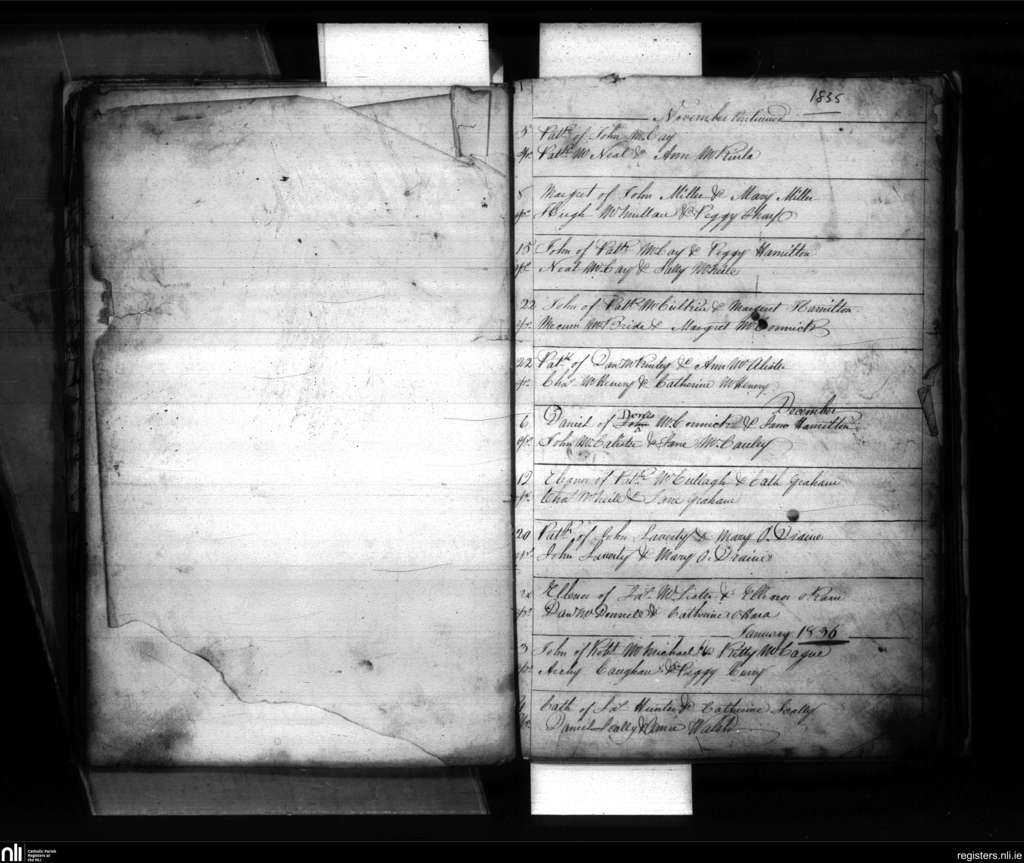 1835
November Continued
5 Patk of John McCay
Patk McNeal & Ann McKinla
8 Margret of John Miller & Mary Miller
Hugh McMullan & Peggy Sharp
15 John of Patk McCay & Peggy Hamilton
Neal McCay & Sally McNeile
22 John of Patk & Margret Hamilton
McBride & Margret McCormick
22 Patk of Danl McKinley & Ann McAlister
Chas McHenry & Catherine McHenry
December
6 Daniel of John McCormick & Jane Hamilton
John McCalister & Jane McCauley
12 Eleanor of Patk McCullagh & Cath Graham
Chas McNeile & Jane Graham
20 Patk of John Laverty & Mary O.Draine
John Laverty & Mary O.Draine
Ellenor of Jas McLister & Ellinor
Danl McDonnell & Catherine OHara
January 1836
3 John of Robt McMichael & Kitty McCague
Archy Caughan & Peggy Curry
Cath of Jas Hunter & Catherine Scally
Daniel Scally & Annie Walsh
nli
Catholic Parish
Registers at
the NLI
registers.nli.ie